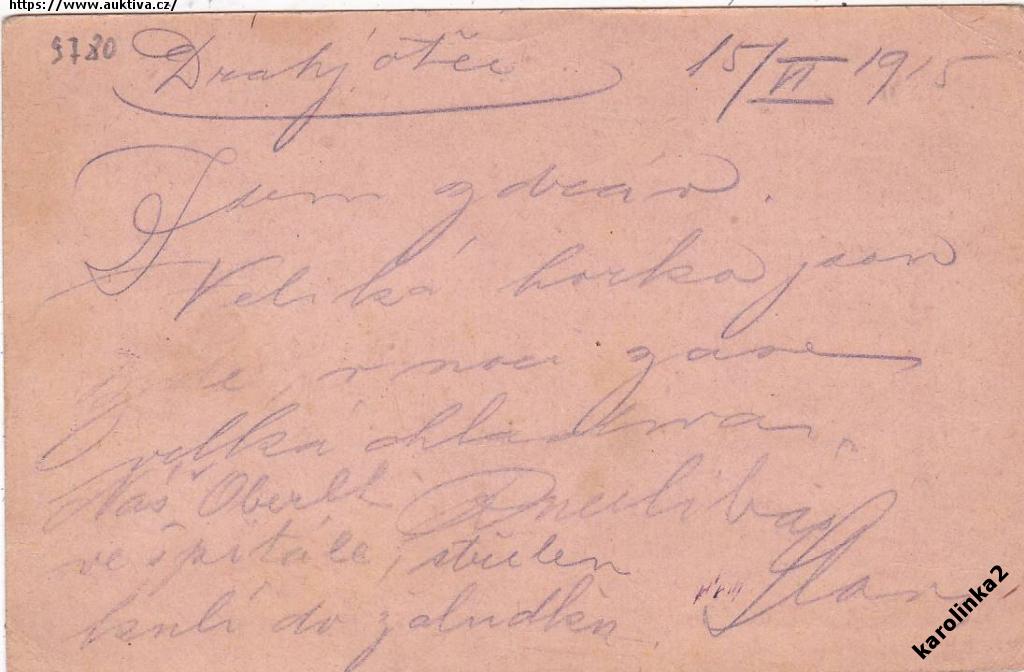 https://www.auktiva.cz/
9780 Drahý otče 15/VI 1915
Jsem zdráv.
Veliká horka jsou
zde, v noci zase
velká chladna.
Náš Oberlt.
ve špitále, střelen
kulí do žaludku.
karolinka2